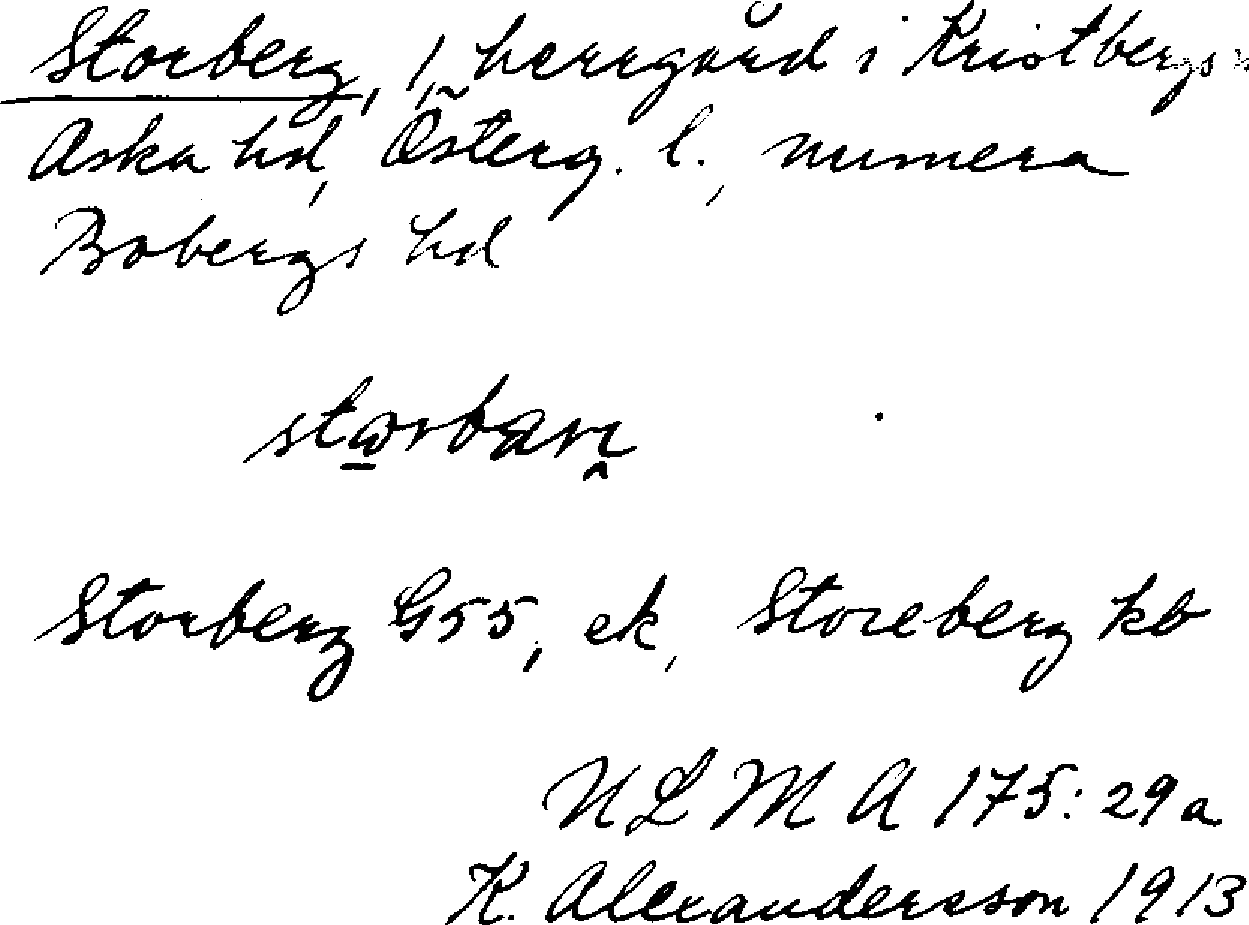 Storberg, 1, herrgård i Kristbergs sn
Aska hd, Österg. l., numera
Bobergs hd
Storberg G55, ek, Storeberg kb
ULMA 175:29a
K. Alexandersson 1913